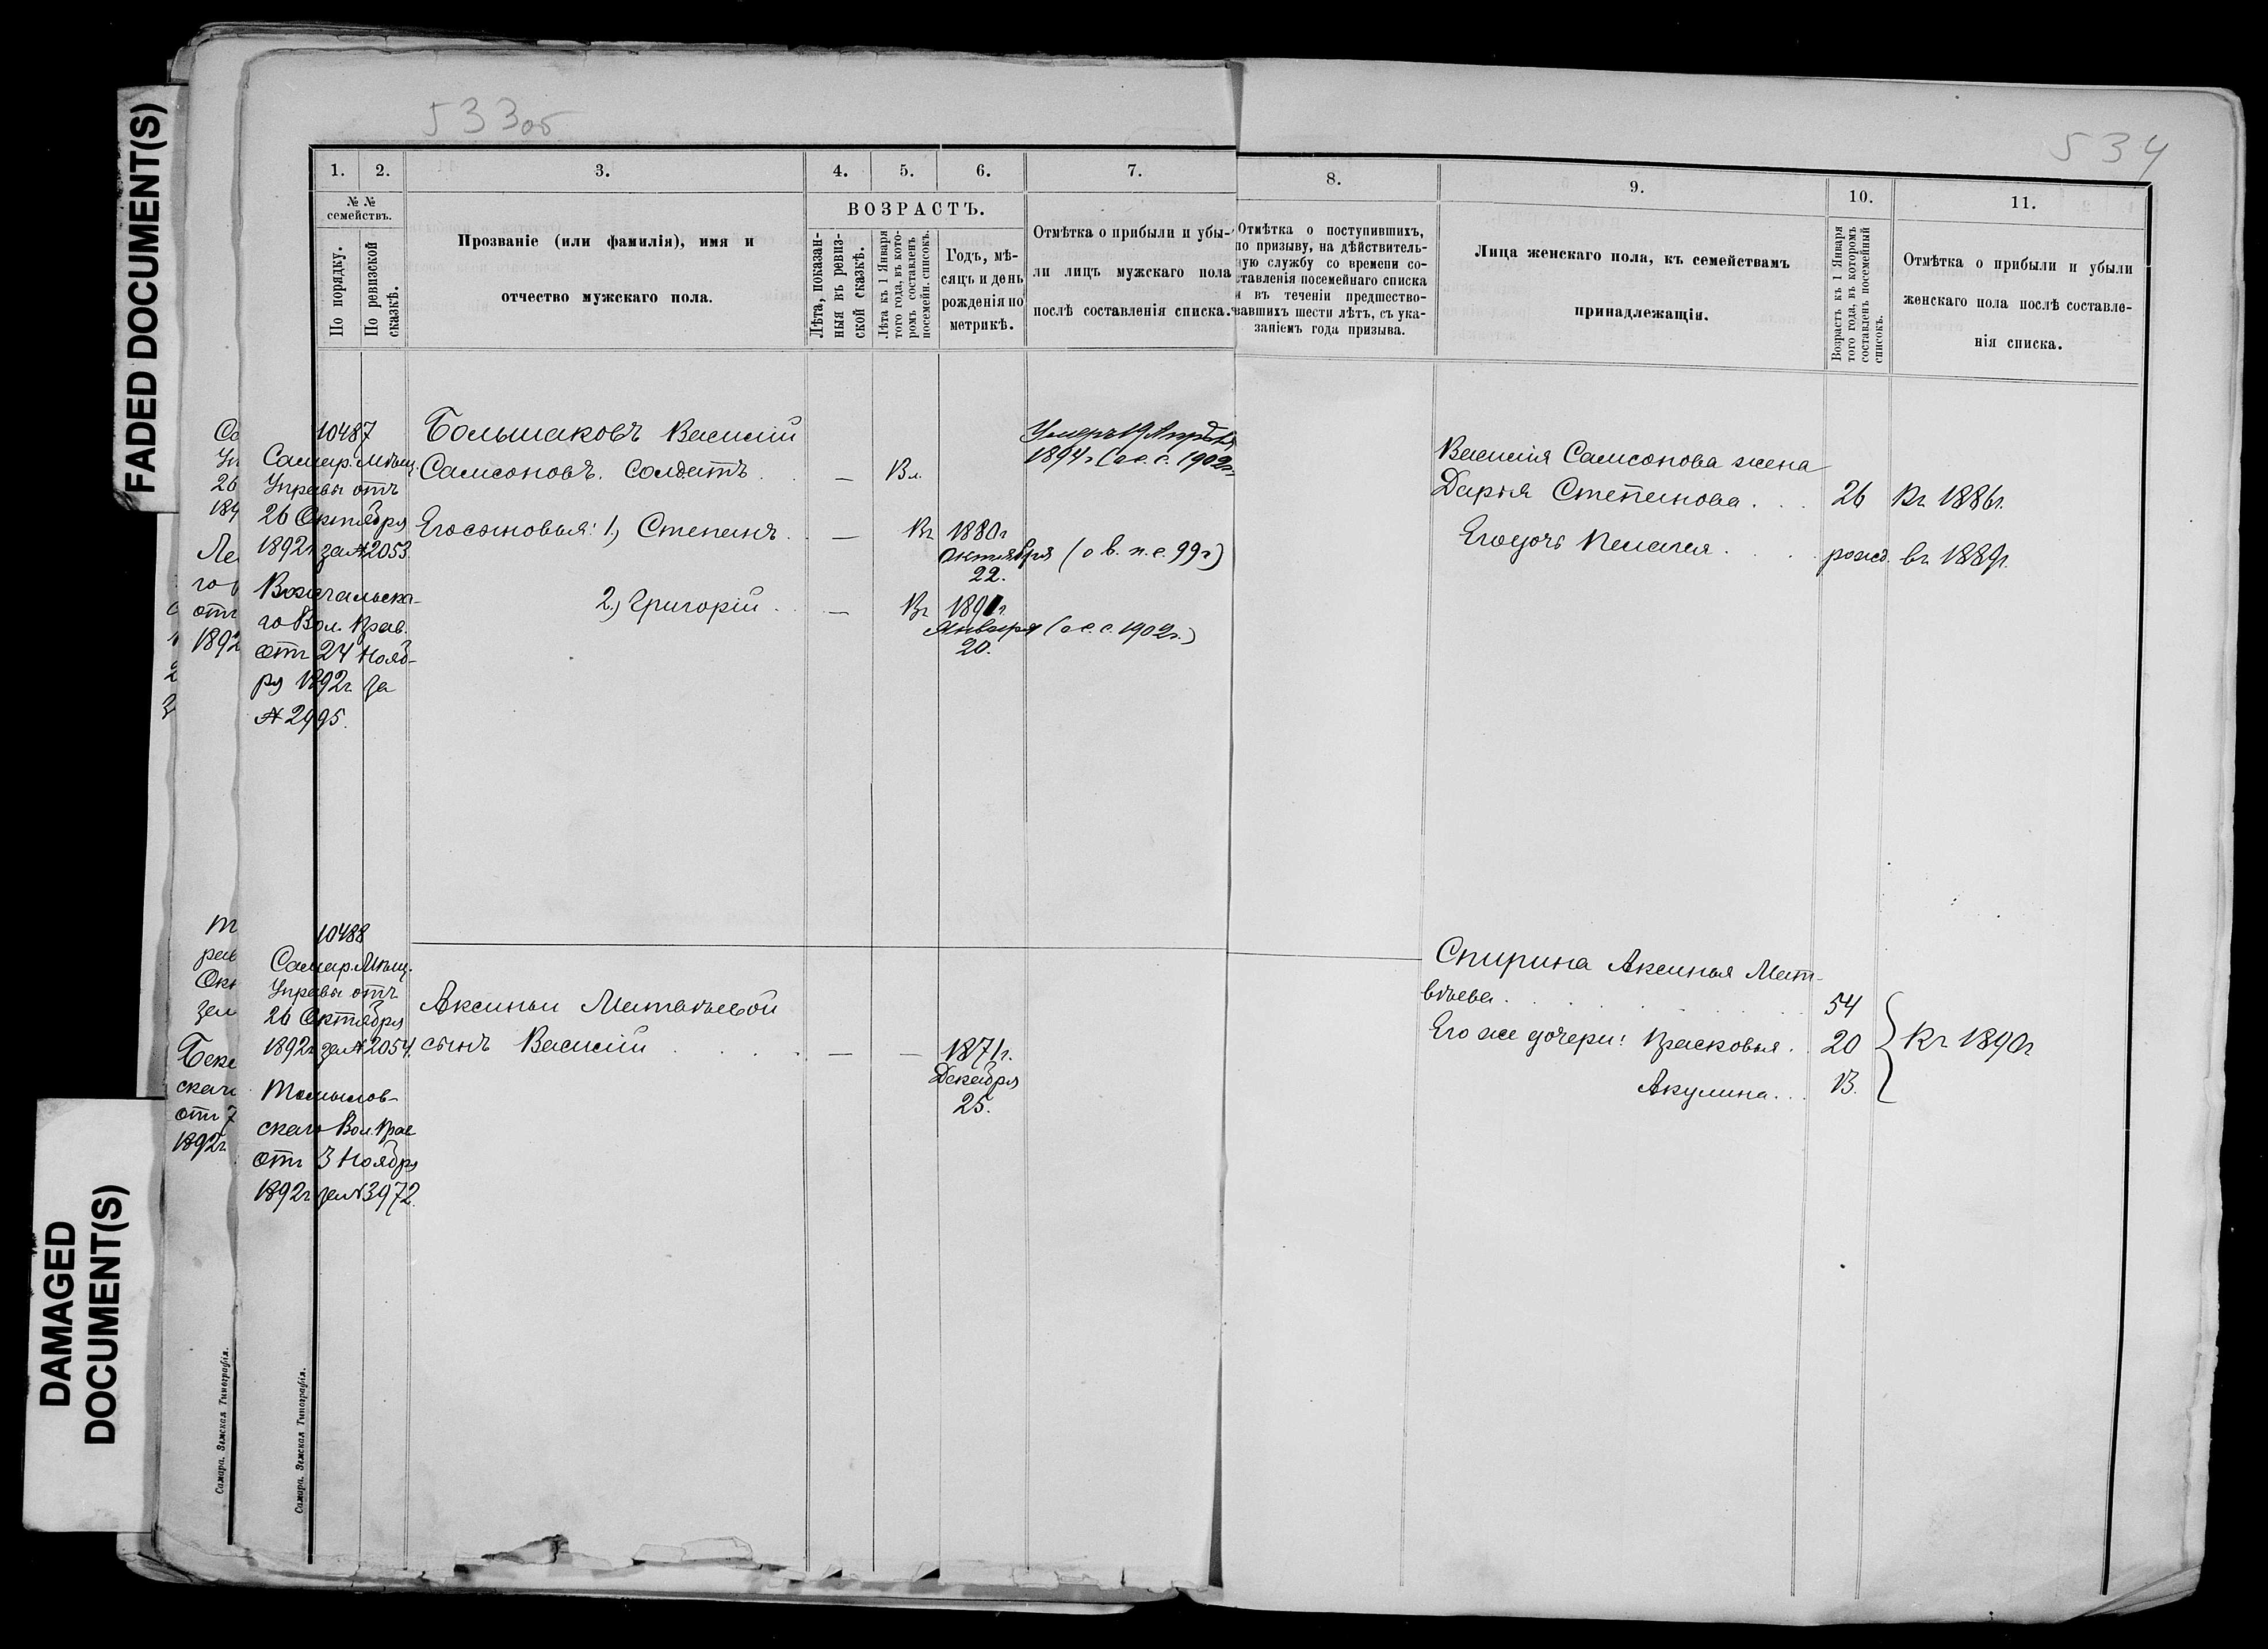 FADED DOCUMENT(S)
DAMAGED
DOCUMENT(S)
533об
534
1.
2.
3.
4.
5.
6.
7.
8.
9.
10.
11.
№ №
семействъ.
По порядку.
По ревизской
сказкѣ.
Прозваніе (или фамилія), имя и
отчество мужскаго пола.
ВОЗРАСТЪ.
Лѣта, показан-
ныя въ ревиз-
ской сказкѣ.
Лѣта къ 1 Января
того года, въ кото-
ромъ составленъ
посемейн. списокъ.
Годъ, мѣ-
сяцъ и день
рожденія по
метрикѣ.
Отмѣтка о прибыли и убы-
ли лицъ мужскаго пола
послѣ составленія списка.
Отмѣтка о поступившихъ,
по призыву, на дѣйствитель-
ную службу со времени со-
ставленія посемейнаго списка
и въ теченіи предшество-
вавшихъ шести лѣтъ, съ ука-
заніемъ года призыва.
Лица женскаго пола, къ семействамъ
принадлежащія.
Возрастъ къ 1 Января
того года, въ которомъ
составленъ посемейный
списокъ.
Отмѣтка о прибыли и убыли
женскаго пола послѣ составле-
нія списка.
10487
Самар. Мѣщ.
Управы отъ
26 Октября
1892г за № 2053
го Вол. Прав.
отъ 24 Нояб-
ря 1892г за
№ 2995.
Большаковъ Василій
Самсоновъ. Солдатъ . . — Вл.
Его сыновья: 1, Степанъ . — 1880г
Октября (о в. п. с 99г)
22.
2, Григорій . . — 1891г
Января (о с. с. 1902г.)
20.
Умеръ 19 Апрѣля
1894г (о с. с. 1902г.
Василія Самсонова жена
Дарья Степанова . . . 26 Къ 1886г.
Его дочь Пелагея . . . рожд. въ 1889г.
10488
Самар. Мѣщ.
Управы отъ
26 Октября
1892г за № 2054.
Томылов-
скаго Вол. Прав
отъ 3 Ноября
1892г за № 3972.
Аксиньи Матвѣевой
сынъ Василій . . . . — — 1871г.
Декабря
25.
Спирина Аксинья Мат-
вѣева . . . . . . 54
Его же дочери: Прасковья . . 20 Къ 1890г
Акулина . . . 13.
Самара. Земская Типографія.
Самара. Земская Типографія.